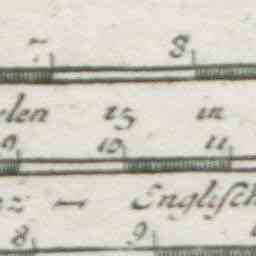 7 8
elen 15 in
9 10 11
nz — Englisch
8 9